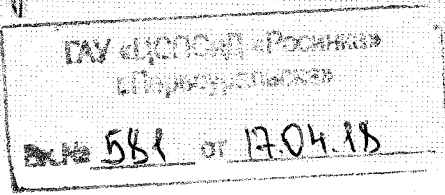 ГАУ «ЦСПСиД «Росинка»
г.Первоуральска»
Вх.№ 581 от 17.04.18